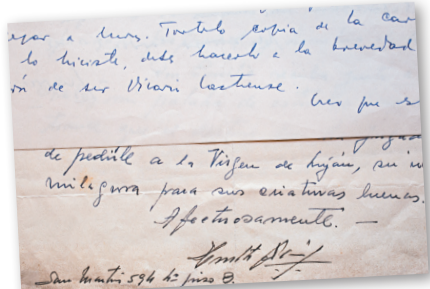 a Mons. Tortolo copia de la car
lo hiciste, debes hacerlo a la brevedad
de ser Vicario Castrense.
Creo que es
de pedirle a la Virgen de Luján, su in
milagrosa para sus criaturas buenas.
Afectuosamente. —
San Martín 594 4º piso B.